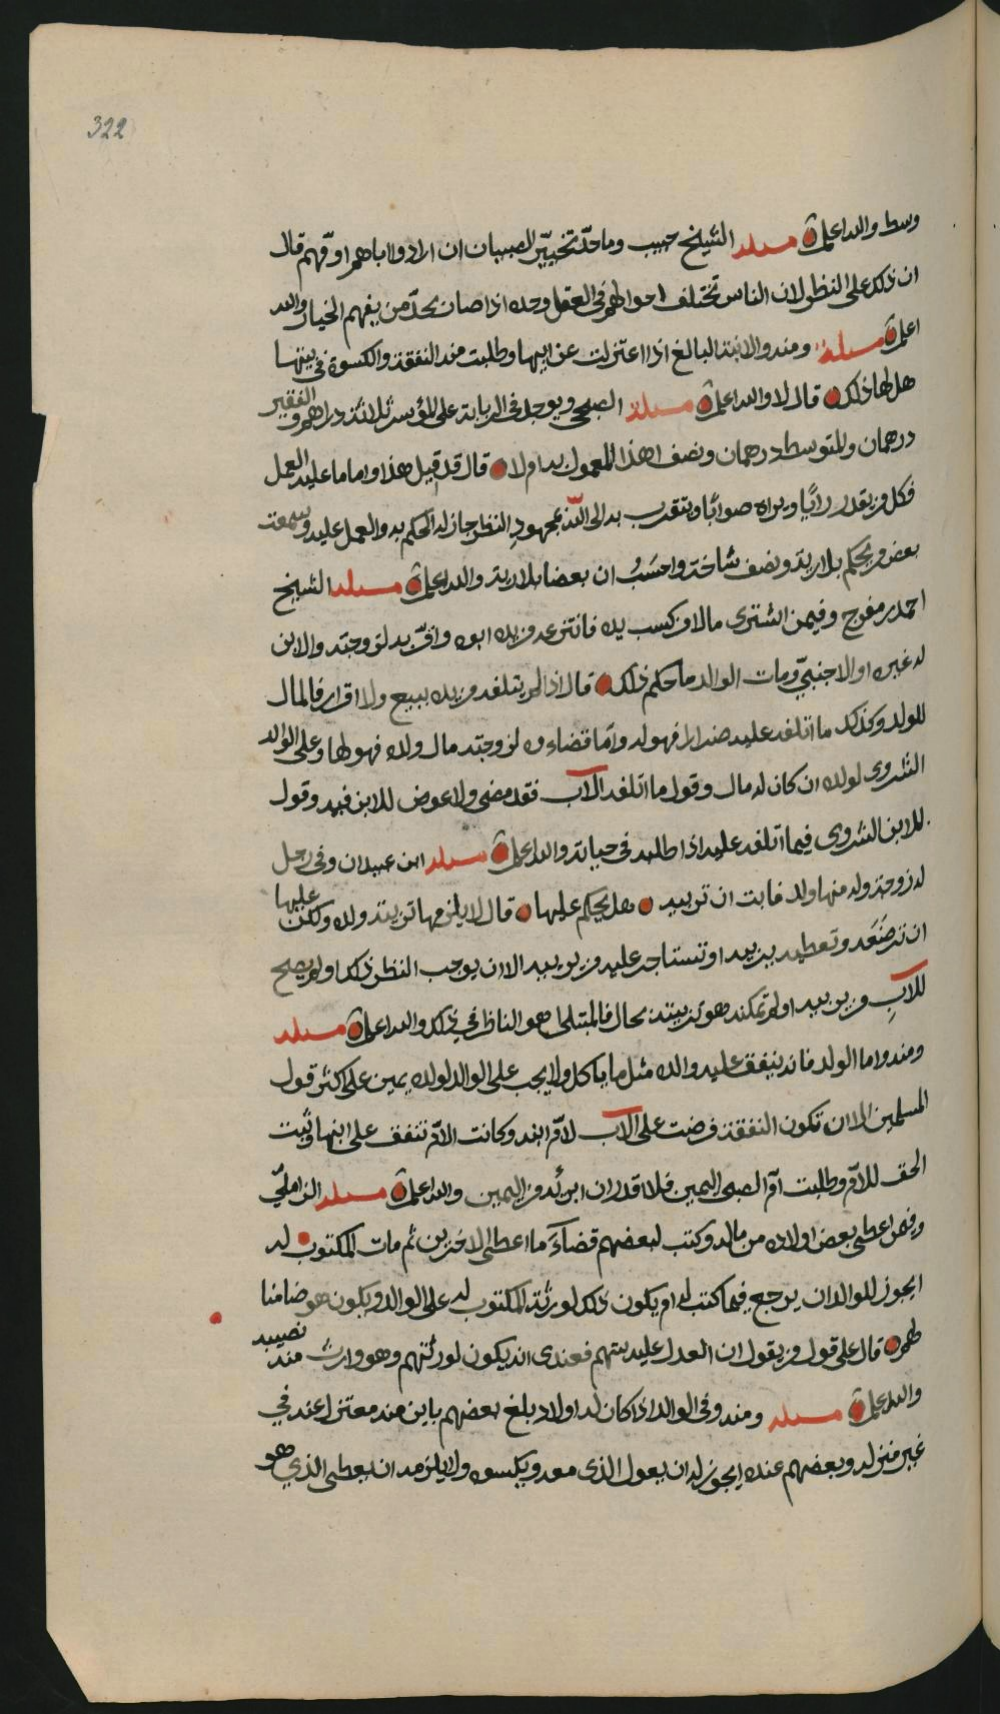 322
وسط والله اعلم مسئلة الشيخ حبيب وما حدّ تخيير الصبيان ان ارادوا اباهم او امّهم قال
ان ذلك على النظر لان الناس تختلف احوالهم في العقل وحده اذا صار بحدّ من يفهم الخيار والله
اعلم مسئلة ومنه والابنة البالغ اذا اعتزلت عن ابيها وطلبت منه النفقة والكسوة في بيتها
هل لها ذلك قال لا والله اعلم مسئلة الصبحي ويوجد في الرباية على المؤسر ثلاثة دراهم والفقير
درهمان وللمتوسط درهمان ونصف اهذا المعمول به ام لا قال قد قيل هذا واما ما عليه العمل
فكل من يقدر رايًا ويراه صوابًا ويتقرب به الى الله بمجهود النظر جاز له الحكم به والعمل عليه وسمعت
بعض من يحكم بلارية ونصف شاخة واحسب ان بعضا بلارية والله اعلم مسئلة الشيخ
احمد بن مفرج وفيمن اشترى مالا من كسب يده فانتزعه من يده ابوه واقرّ به لزوجته والابن
له غيره او لاجنبيّ ومات الوالد ما حكم ذلك قال اذا لم يتلفه من يده ببيع ولا اقرار فالمال
للولد وكذلك ما اتلفه عليه ضرارا فهو له وامّا قضاءوه لزوجته مال ولده فهو لها وعلى الوالد
الشروى لولده ان كان له مال وقول ما اتلفه الاب فقد مضى ولا عوض للابن فيه وقول
للابن الشروى فيما اتلفه عليه اذا طلبه في حياته والله اعلم مسئلة ابن عبيدان وفي رجل
له زوجة وله منها ولد فابت ان تربيه هل يحكم عليها قال لا يلزمها تربيته ولده ولكن عليها
ان ترضعه وتعطيه يربيه او تستاجر عليه من يربيه الا ان يوجب النظر ذلك او لم يصح
للاب من يربيه او لم تمكنه هو تربيته بحال فالمبتلى هو الناظر في ذلك والله اعلم مسئلة
ومنه واما الولد فانه ينفق عليه والده مثل ما ياكل ولا يجب على الوالد لولده يمين على اكثر قول
المسلمين الا ان تكون النفقة فرضت على الاب لامّ ابنه وكانت الامّ تنفق على ابنها وثبت
الحق للامّ وطلبت امّ الصبي اليمين فلا اقدر ان ابرئه من اليمين والله اعلم مسئلة الزاملّي
وفيمن اعطى بعض اولاده من ماله وكتب لبعضهم قضاءً ما اعطى الاخرين ثم مات المكتوب له
ايجوز للوالد ان يرجع فيما كتب له ام يكون ذلك لورثة المكتوب له على الوالد ويكون هو ضامنا
لهم قال على قول من يقول ان العدل عليه بينهم فعندي انه يكون لورثتهم وهو وارث منه نصيبه
والله اعلم مسئلة ومنه وفي الوالد اذا كان له اولاد بلغ بعضهم باين منه معتزل عنه في
غير منزله وبعضهم عنده ايجوز له ان يعول الذي معه ويكسوه ولا يلزمه ان يعطي الذي هو